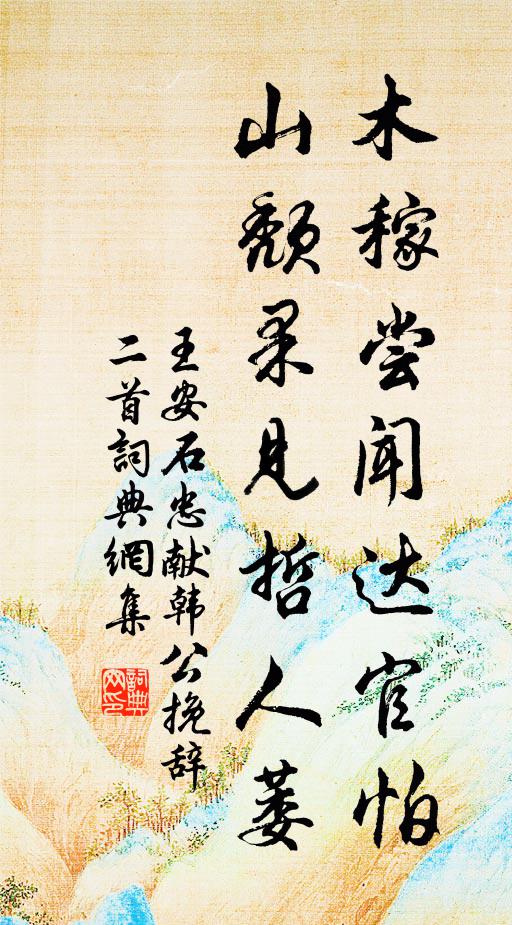 木稼尝闻达官怕
山颓果见哲人萎
王安石忠献韩公挽辞
二首詞典網集
詞典
网印